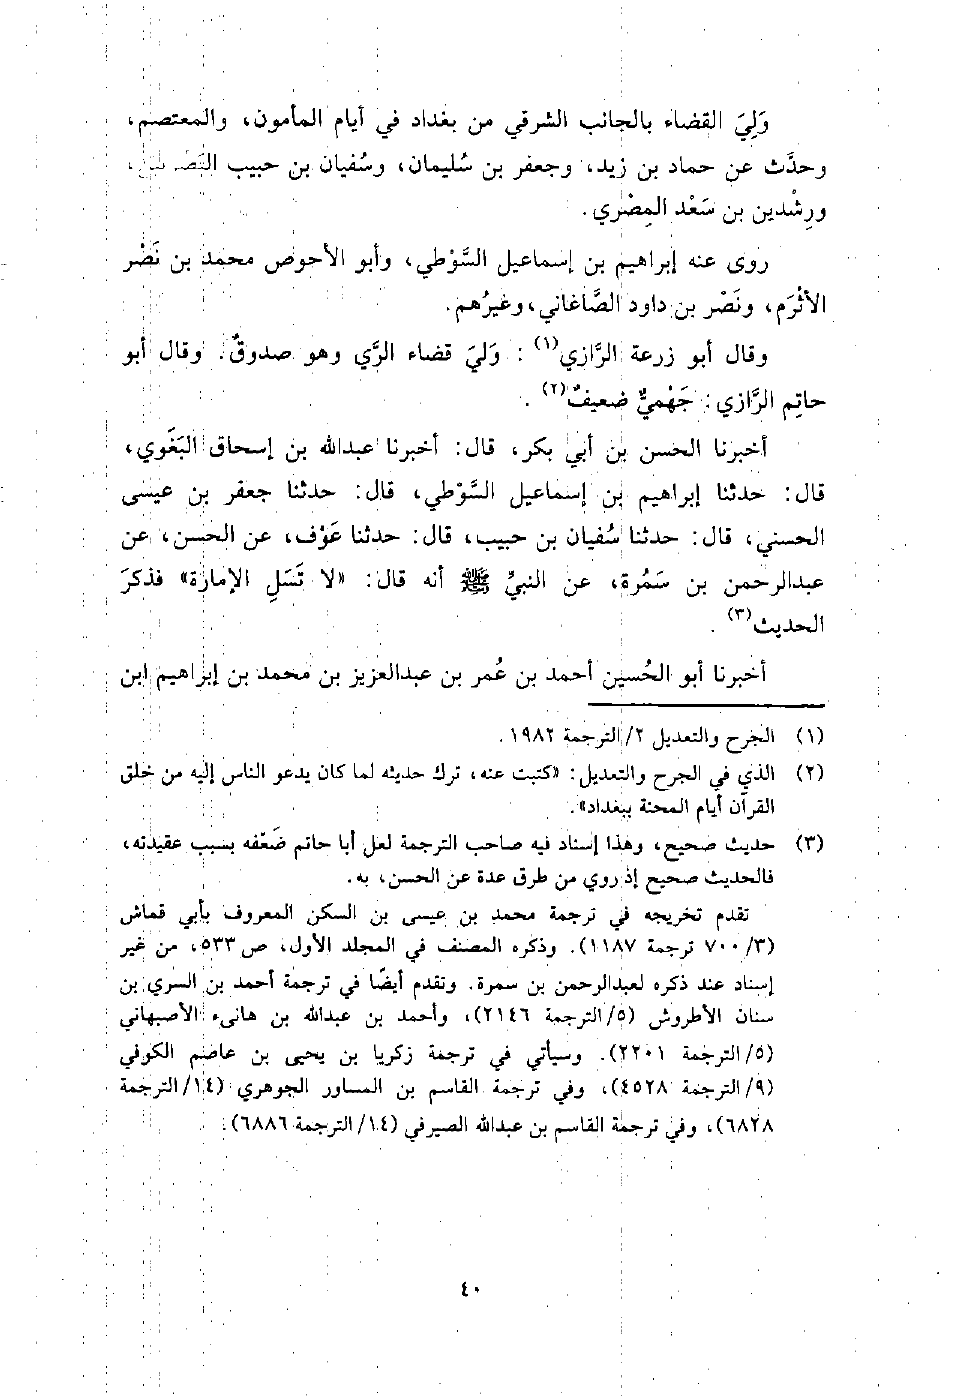 وَلِيَ القضاء بالجانب الشرقي من بغداد في أيام المأمون، والمعتصم،
وحدَّث عن حماد بن زيد، وجعفر بن سُليمان، وسُفيان بن حبيب
ورِشْدين بن سَعْد المِصْري.
روى عنه إبراهيم بن إسماعيل السَّوْطي، وأبو الأحوص محمد بن نَصْر
الأثْرَم، ونَصْر بن داود الصَّاغاني، وغيرُهم.
وقال أبو زرعة الرَّازي(١): وَلِيَ قضاء الرَّي وهو صدوقٌ. وقال أبو
حاتِم الرَّازي: جَهْميٌّ ضعيفٌ(٢).
أخبرنا الحسن بن أبي بكر، قال: أخبرنا عبدالله بن إسحاق البَغَوي،
قال: حدثنا إبراهيم بن إسماعيل السَّوْطي، قال: حدثنا جعفر بن عيسى
الحسني، قال: حدثنا سُفيان بن حبيب، قال: حدثنا عَوْف، عن الحسن، عن
عبدالرحمن بن سَمُرة، عن النبيِّ ﷺ أنه قال: «لا تَسَلِ الإمارة» فذكرَ
الحديث(٣).
أخبرنا أبو الحُسين أحمد بن عُمر بن عبدالعزيز بن محمد بن إبراهيم ابن
(١) الجرح والتعديل ٢/ الترجمة ١٩٨٢.
(٢) الذي في الجرح والتعديل: «كتبت عنه، ترك حديثه لما كان يدعو الناس إليه من خلق
القرآن أيام المحنة ببغداد».
(٣) حديث صحيح، وهذا إسناد فيه صاحب الترجمة لعل أبا حاتم ضَعّفه بسبب عقيدته،
فالحديث صحيح إذ روي من طرق عدة عن الحسن، به.
تقدم تخريجه في ترجمة محمد بن عيسى بن السكن المعروف بأبي قماش
(٣/ ٧٠٠ ترجمة ١١٨٧). وذكره المصنف في المجلد الأول، ص ٥٣٣، من غير
إسناد عند ذكره لعبدالرحمن بن سمرة. وتقدم أيضًا في ترجمة أحمد بن السري بن
سنان الأطروش (٥/ الترجمة ٢١٤٦)، وأحمد بن عبدالله بن هانىء الأصبهاني
(٥/ الترجمة ٢٢٠١). وسيأتي في ترجمة زكريا بن يحيى بن عاصم الكوفي
(٩/ الترجمة ٤٥٢٨)، وفي ترجمة القاسم بن المساور الجوهري (١٤/ الترجمة
٦٨٢٨)، وفي ترجمة القاسم بن عبدالله الصيرفي (١٤/ الترجمة ٦٨٨٦).
٤٠